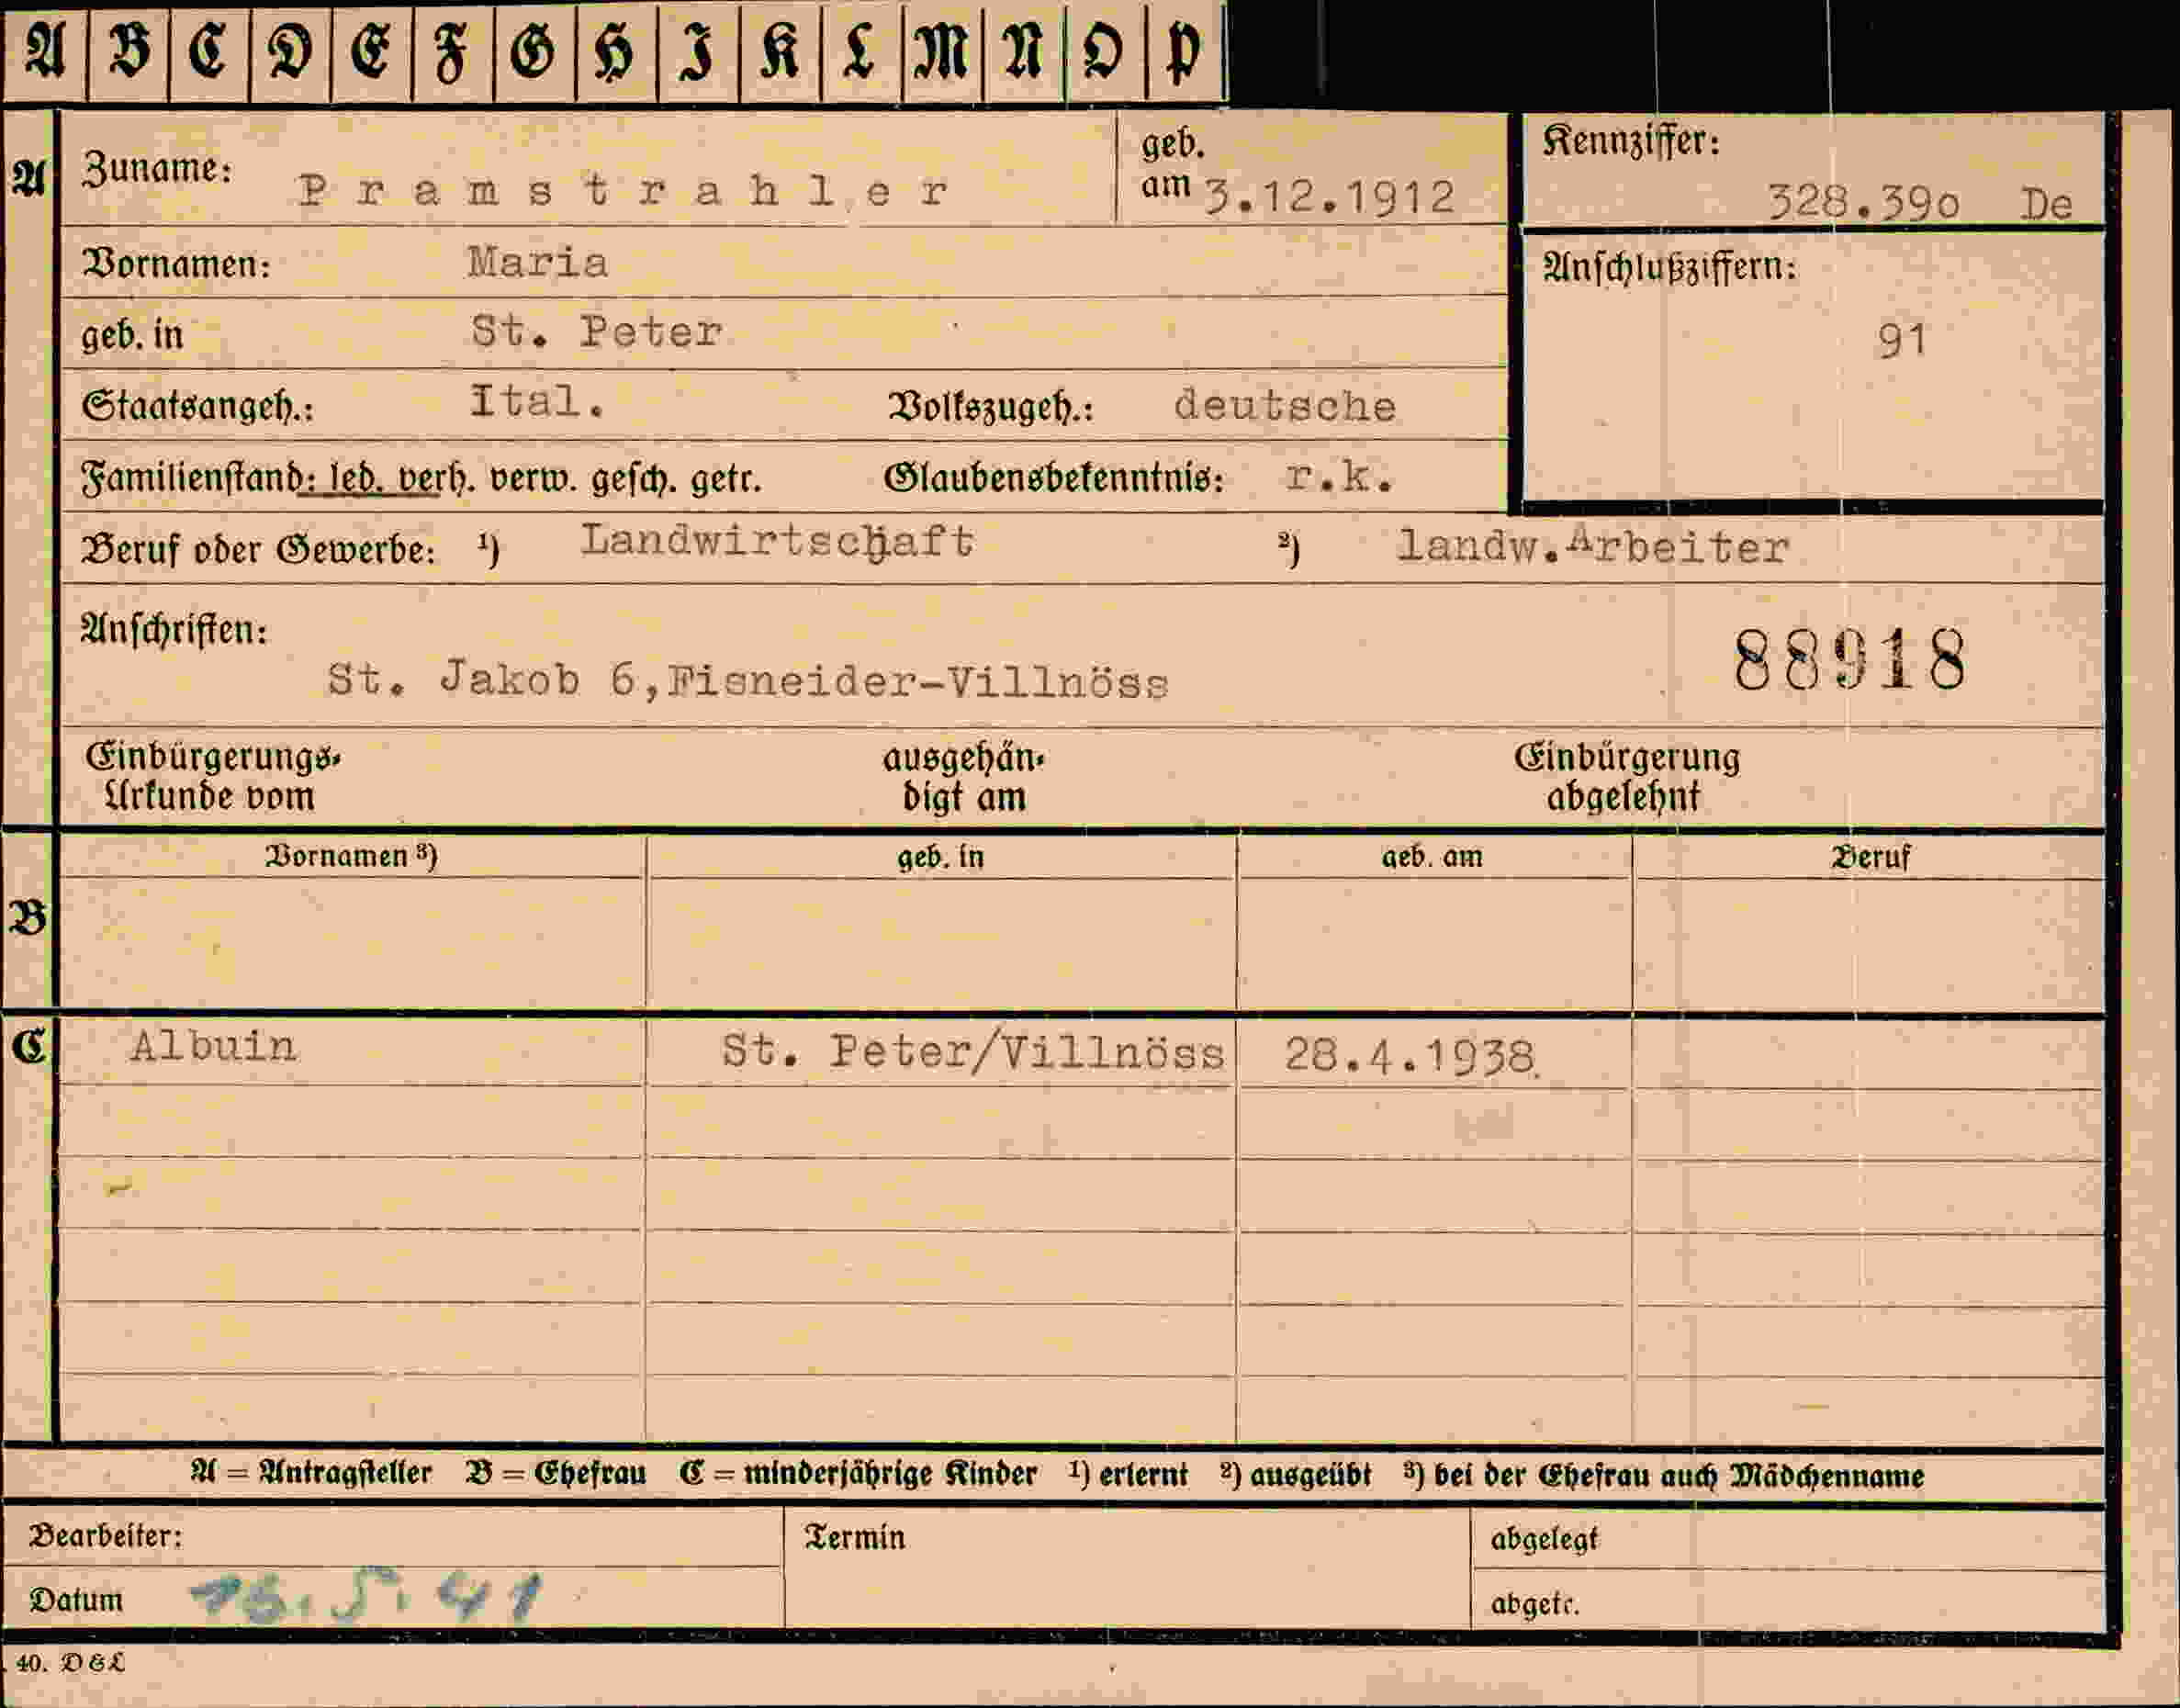 A B C D E F G H I K L M N O P
A Zuname: Pramstrahler geb. am 3.12.1912 Kennziffer: 328.39o De
Vornamen: Maria Anschlußziffern:
geb. in St. Peter 91
Staatsangeh.: Ital. Volkszugeh.: deutsche
Familienstand: led. verh. verw. gesch. getr. Glaubensbekenntnis: r.k.
Beruf oder Gewerbe: ¹) Landwirtschaft ²) landw.Arbeiter
Anschriften: 88918
St. Jakob 6,Fisneider-Villnöss
Einbürgerungs- ausgehän- Einbürgerung
Urkunde vom digt am abgelehnt
Vornamen ³) geb. in geb. am Beruf
B
C Albuin St. Peter/Villnöss 28.4.1938
A = Antragsteller B = Ehefrau C = minderjährige Kinder ¹) erlernt ²) ausgeübt ³) bei der Ehefrau auch Mädchenname
Bearbeiter: Termin abgelegt
Datum 16.5.41 abgetr.
40. D & L